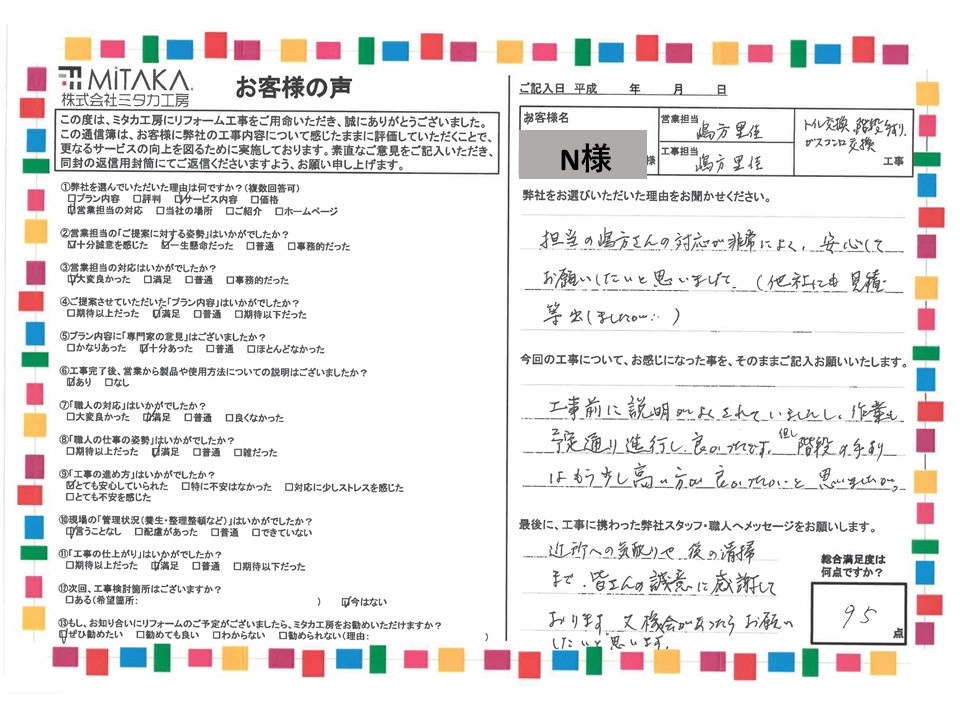 MiTAKA.
株式会社ミタカ工房
お客様の声
この度は、ミタカ工房にリフォーム工事をご用命いただき、誠にありがとうございました。
この通信簿は、お客様に弊社の工事内容について感じたままに評価していただくことで、
更なるサービスの向上を図るために実施しております。素直なご意見をご記入いただき、
同封の返信用封筒にてご返信くださいますよう、お願い申し上げます。
①弊社を選んでいただいた理由は何ですか？（複数回答可）
□プラン内容 □評判 ☑サービス内容 □価格
☑営業担当の対応 □当社の場所 □ご紹介 □ホームページ
②営業担当の「ご提案に対する姿勢」はいかがでしたか？
☑十分誠意を感じた ☑一生懸命だった □普通 □事務的だった
③営業担当の対応はいかがでしたか？
☑大変良かった □満足 □普通 □事務的だった
④ご提案させていただいた「プラン内容」はいかがでしたか？
□期待以上だった ☑満足 □普通 □期待以下だった
⑤プラン内容に「専門家の意見」はございましたか？
□かなりあった ☑十分あった □普通 □ほとんどなかった
⑥工事完了後、営業から製品や使用方法についての説明はございましたか？
☑あり □なし
⑦「職人の対応」はいかがでしたか？
□大変良かった ☑満足 □普通 □良くなかった
⑧「職人の仕事の姿勢」はいかがでしたか？
□期待以上だった ☑満足 □普通 □雑だった
⑨「工事の進め方」はいかがでしたか？
☑とても安心していられた □特に不安はなかった □対応に少しストレスを感じた
□とても不安を感じた
⑩現場の「管理状況（養生・整理整頓など）」はいかがでしたか？
☑言うことなし □配慮があった □普通 □できていない
⑪「工事の仕上がり」はいかがでしたか？
□期待以上だった ☑満足 □普通 □期待以下だった
⑫次回、工事検討箇所はございますか？
□ある（希望箇所： ） ☑今はない
⑬もし、お知り合いにリフォームのご予定がございましたら、ミタカ工房をお勧めいただけますか？
☑ぜひ勧めたい □勧めても良い □わからない □勧められない（理由： ）
ご記入日 平成 年 月 日
お客様名
N様
様
営業担当
嶋方里佳
工事担当
嶋方里佳
トイレ交換、階段手すり、
ガスコンロ交換
工事
弊社をお選びいただいた理由をお聞かせください。
担当の嶋方さんの対応が非常によく、安心して
お願いしたいと思いました。（他社にも見積
等出しましたが…）
今回の工事について、お感じになった事を、そのままご記入お願いいたします。
工事前に説明がよくされていましたし、作業も
予定通り進行し、良かったです。但し階段の手すり
はもう少し高い方が良かったかいと思いましたが。
最後に、工事に携わった弊社スタッフ・職人へメッセージをお願いします。
近所への気配りや、後の清掃
まで、皆さんの誠意に感謝して
おります。又機会があったらお願い
したいと思います。
総合満足度は
何点ですか？
95
点